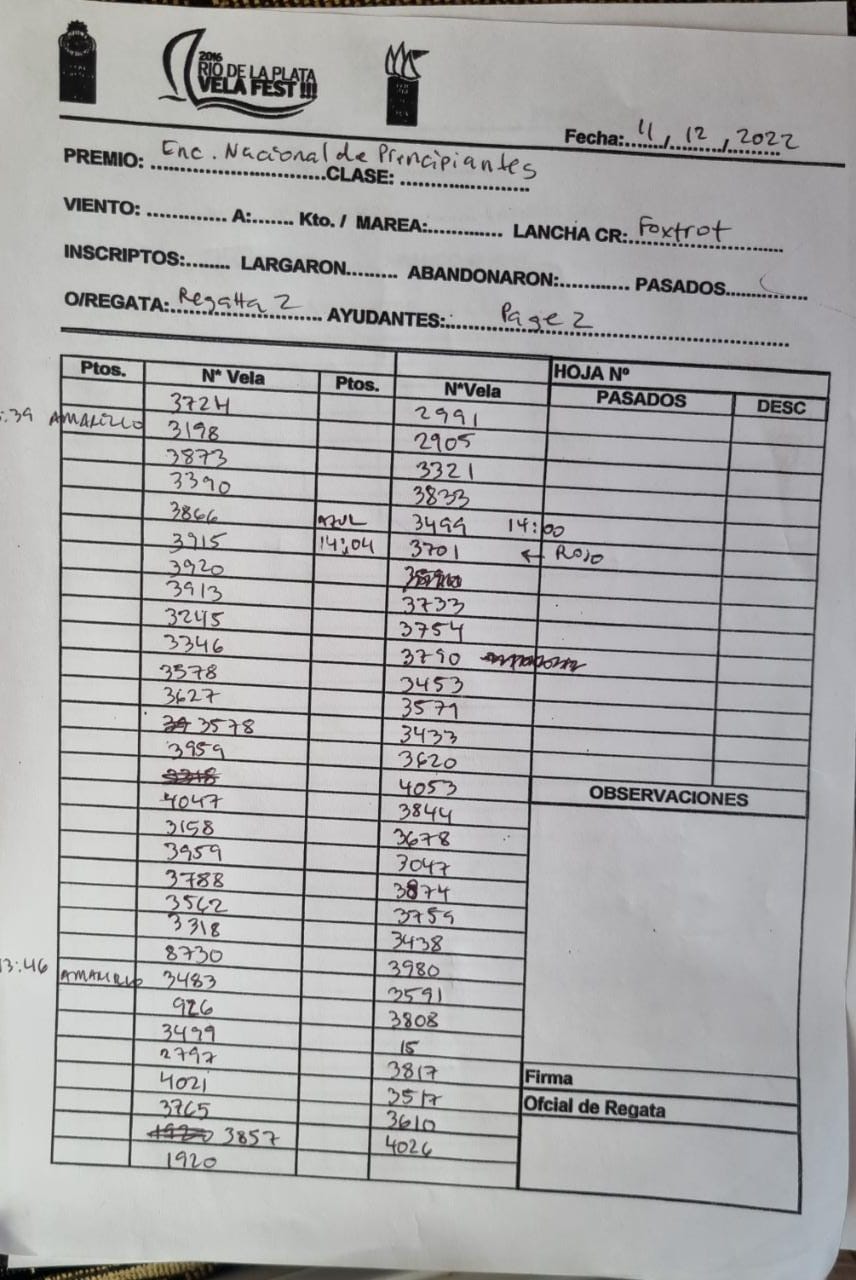 2016
RIO DE LA PLATA
VELA FEST !!!
Fecha: 11 / 12 / 2022
PREMIO: Enc. Nacional de Principiantes CLASE:
VIENTO: A: Kto. / MAREA: LANCHA CR: Foxtrot
INSCRIPTOS: LARGARON ABANDONARON: PASADOS
O/REGATA: Regatta 2 AYUDANTES: Page 2
Ptos. N* Vela Ptos. N*Vela HOJA Nº
PASADOS DESC
3724 2991
:39 AMARILLO 3198 2905
3873 3321
3390 3833
3866 AZUL 3499 14:00
3915 14:04 3701 ← ROJO
3920
3913 3733
3245 3754
3346 3790
3578 3453
3627 3571
3578 3433
3959 3620
4053
4047 3844
3158 3678
3959 3047
3788 3874
3562 3759
3318 3438
8730 3980
13:46 AMARILLO 3483 3591
926 3808
3499 15
2797 3817
4021 3517
3765 3610
3857 4026
1920
OBSERVACIONES
Firma
Ofcial de Regata